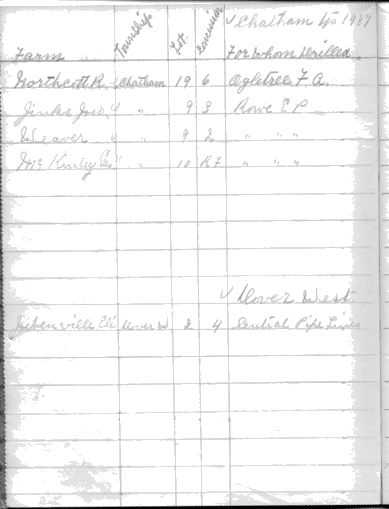 ✓ Chatham Tp 1937
Farm Township Lot Concession For Whom Drilled
Northcott R. Chatham 19 6 Ogletree F. A.
Jinks Jno. 4 " 9 3 Rowe E P
Weaver 4 " 9 2 " " "
McKinley Geo " " 10 R F " " "
✓ Dover West
Dover W 2 4 Central Pipe Lines